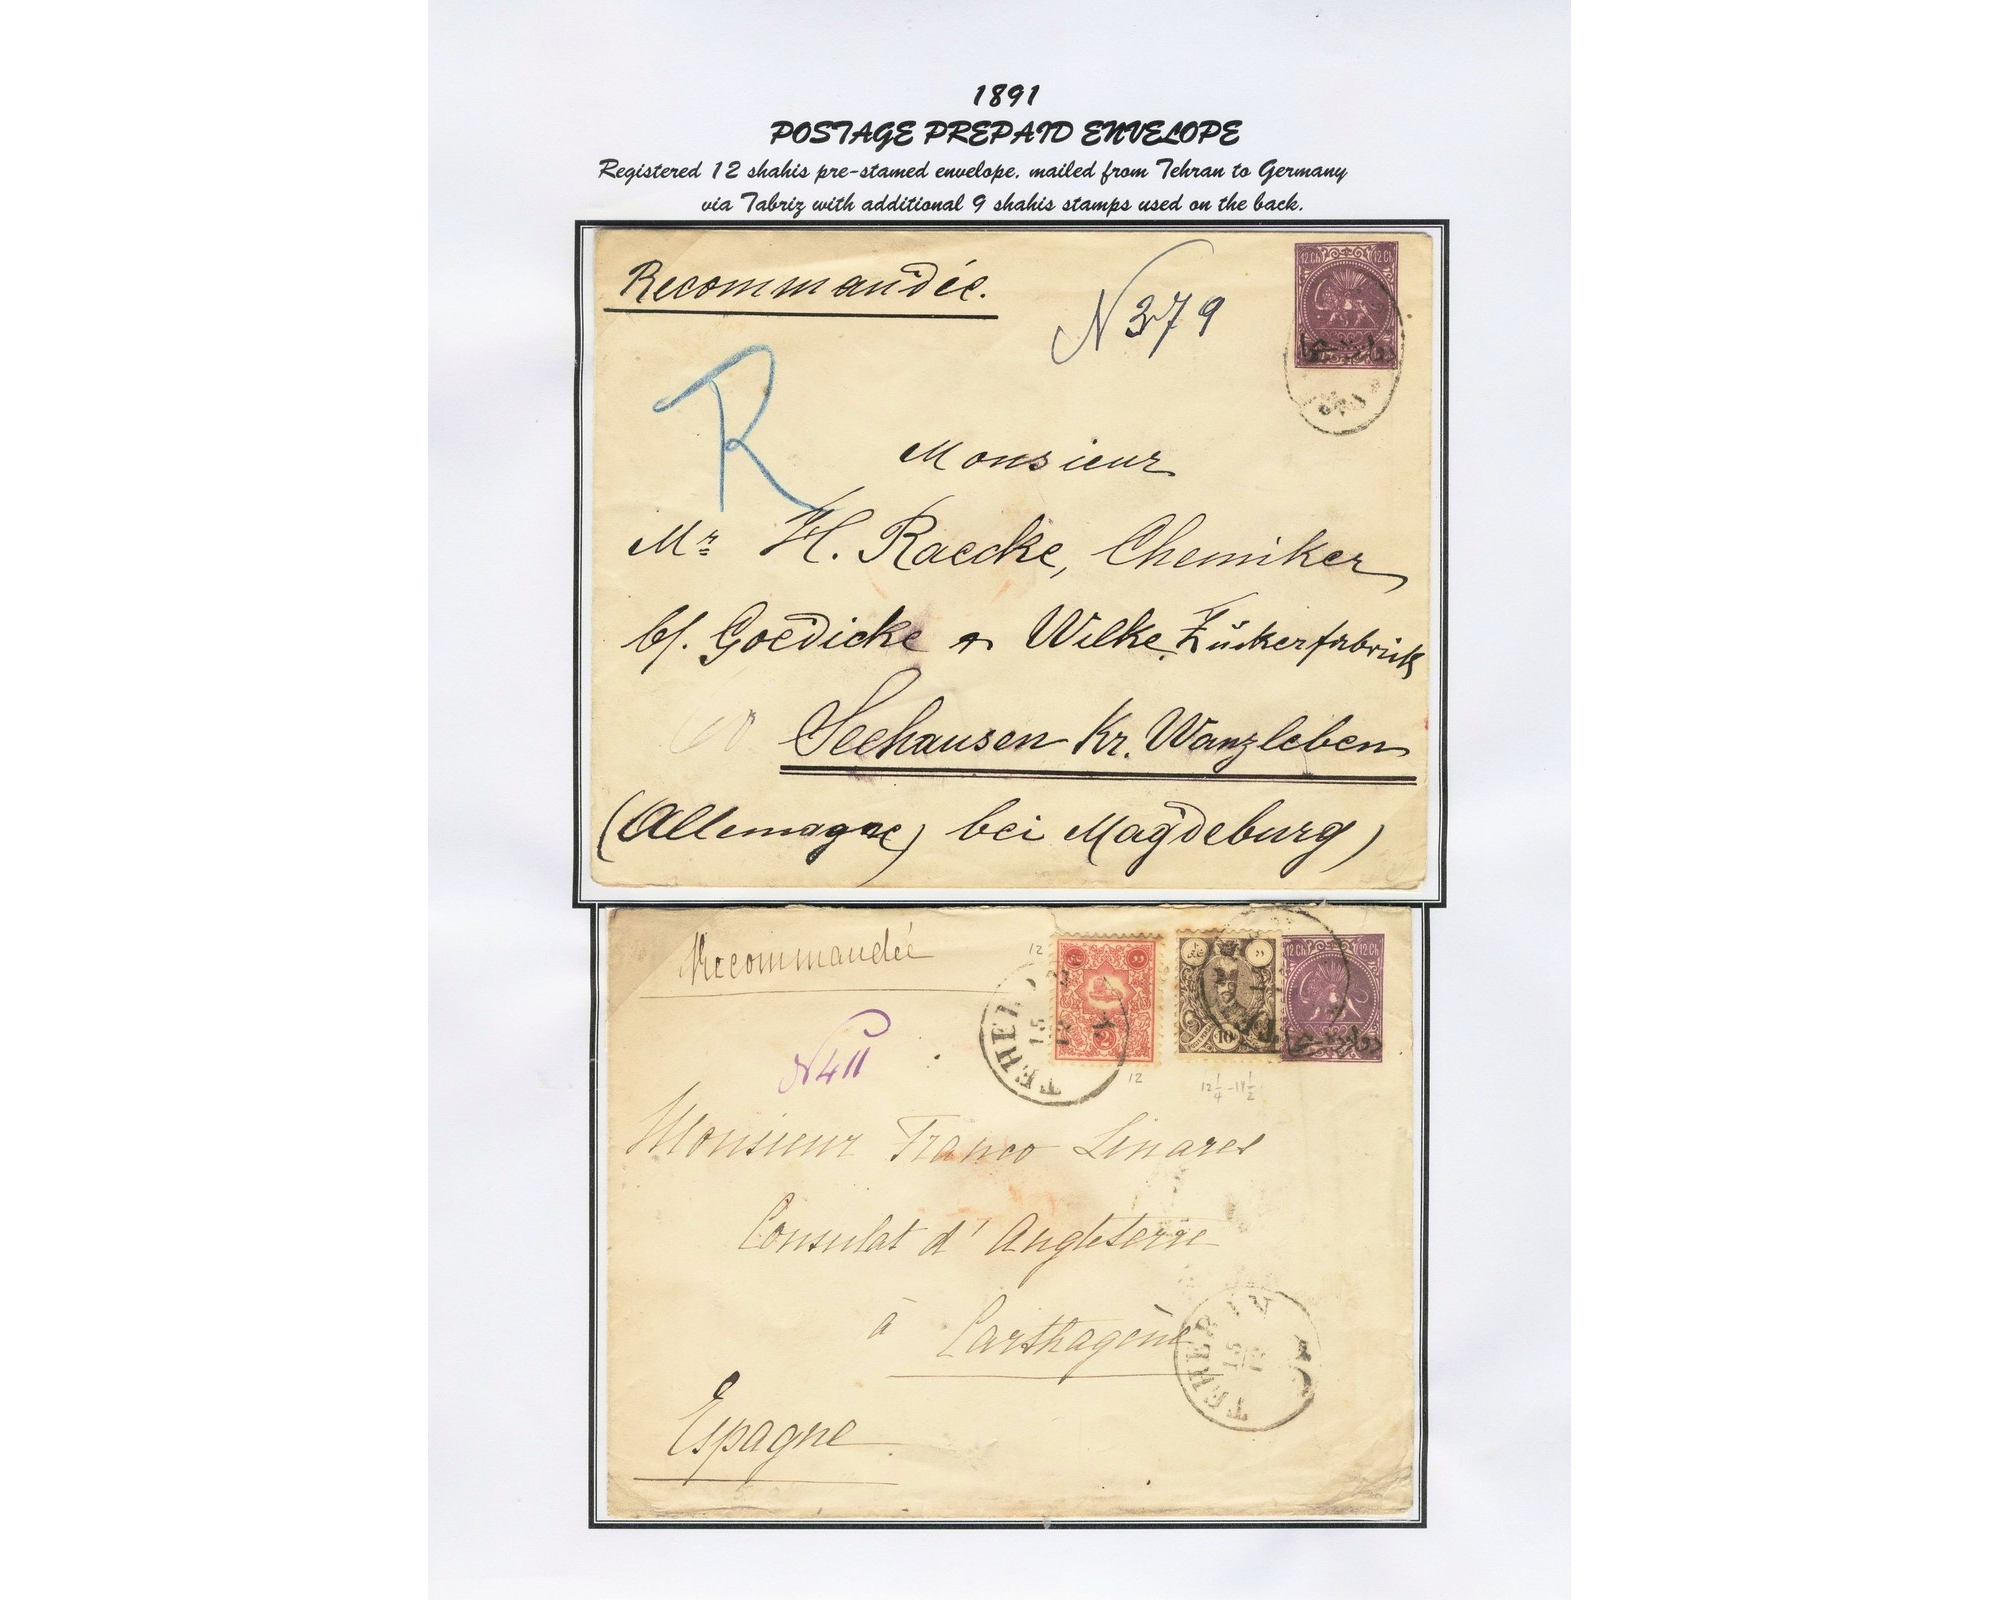 1891
POSTAGE PREPAID ENVELOPE
Registered 12 shahis pre-stamed envelope. mailed from Tehran to Germany
via Tabriz with additional 9 shahis stamps used on the back.
Recommandée.
N 379
12 Ch 12 Ch
R
Monsieur
Mr H. Raecke, Chemiker
b/. Goedicke & Wilke, Zuckerfabrik
Seehausen Kr. Wanzleben
(Allemagne) bei Magdeburg)
Recommandée
12
12 Ch 12 Ch
10
TEHE
15
12
12
12 1/4 - 11 1/2
N 411
Monsieur Franco Linares
Consulat d'Angleterre
à Carthagène
TEHERAN
15
12
Espagne